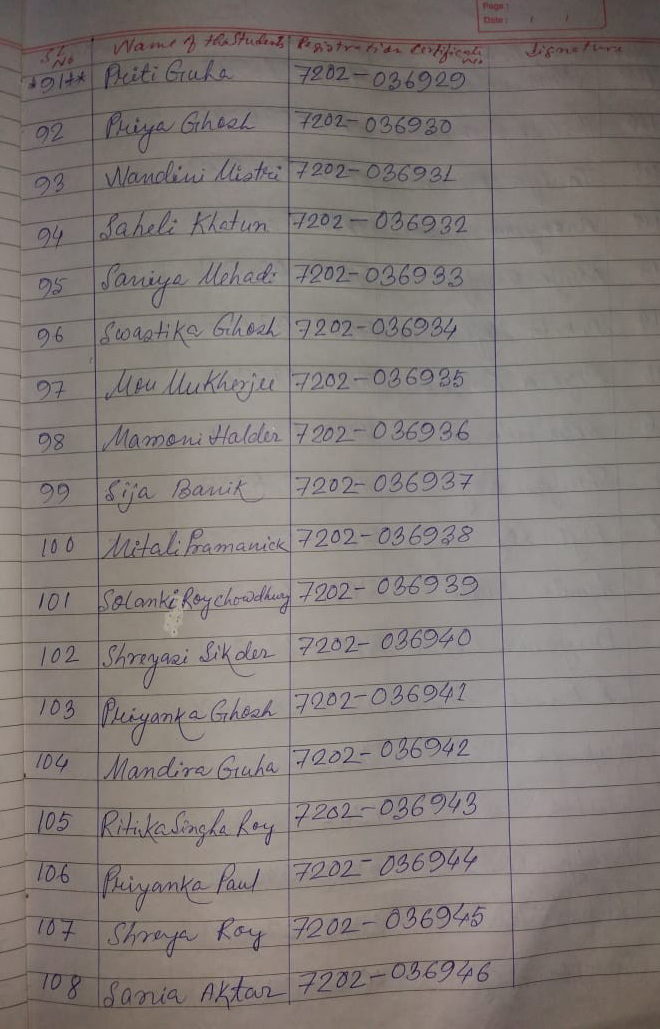 Page :
Date : / /
SL No Name of the Students Registration Certificate No Signature
*91** Priti Guha 7202-036929
92 Priya Ghosh 7202-036930
93 Nandini Mistri 7202-036931
94 Saheli Khatun 7202-036932
95 Saniya Mehadi 7202-036933
96 Swastika Ghosh 7202-036934
97 Mou Mukherjee 7202-036935
98 Mamoni Halder 7202-036936
99 Sija Banik 7202-036937
100 Mitali Pramanick 7202-036938
101 Solanki Roychowdhury 7202-036939
102 Shreyasi Sikder 7202-036940
103 Priyanka Ghosh 7202-036941
104 Mandira Guha 7202-036942
105 Ritika Singha Roy 7202-036943
106 Priyanka Paul 7202-036944
107 Shreya Roy 7202-036945
108 Sania Aktar 7202-036946